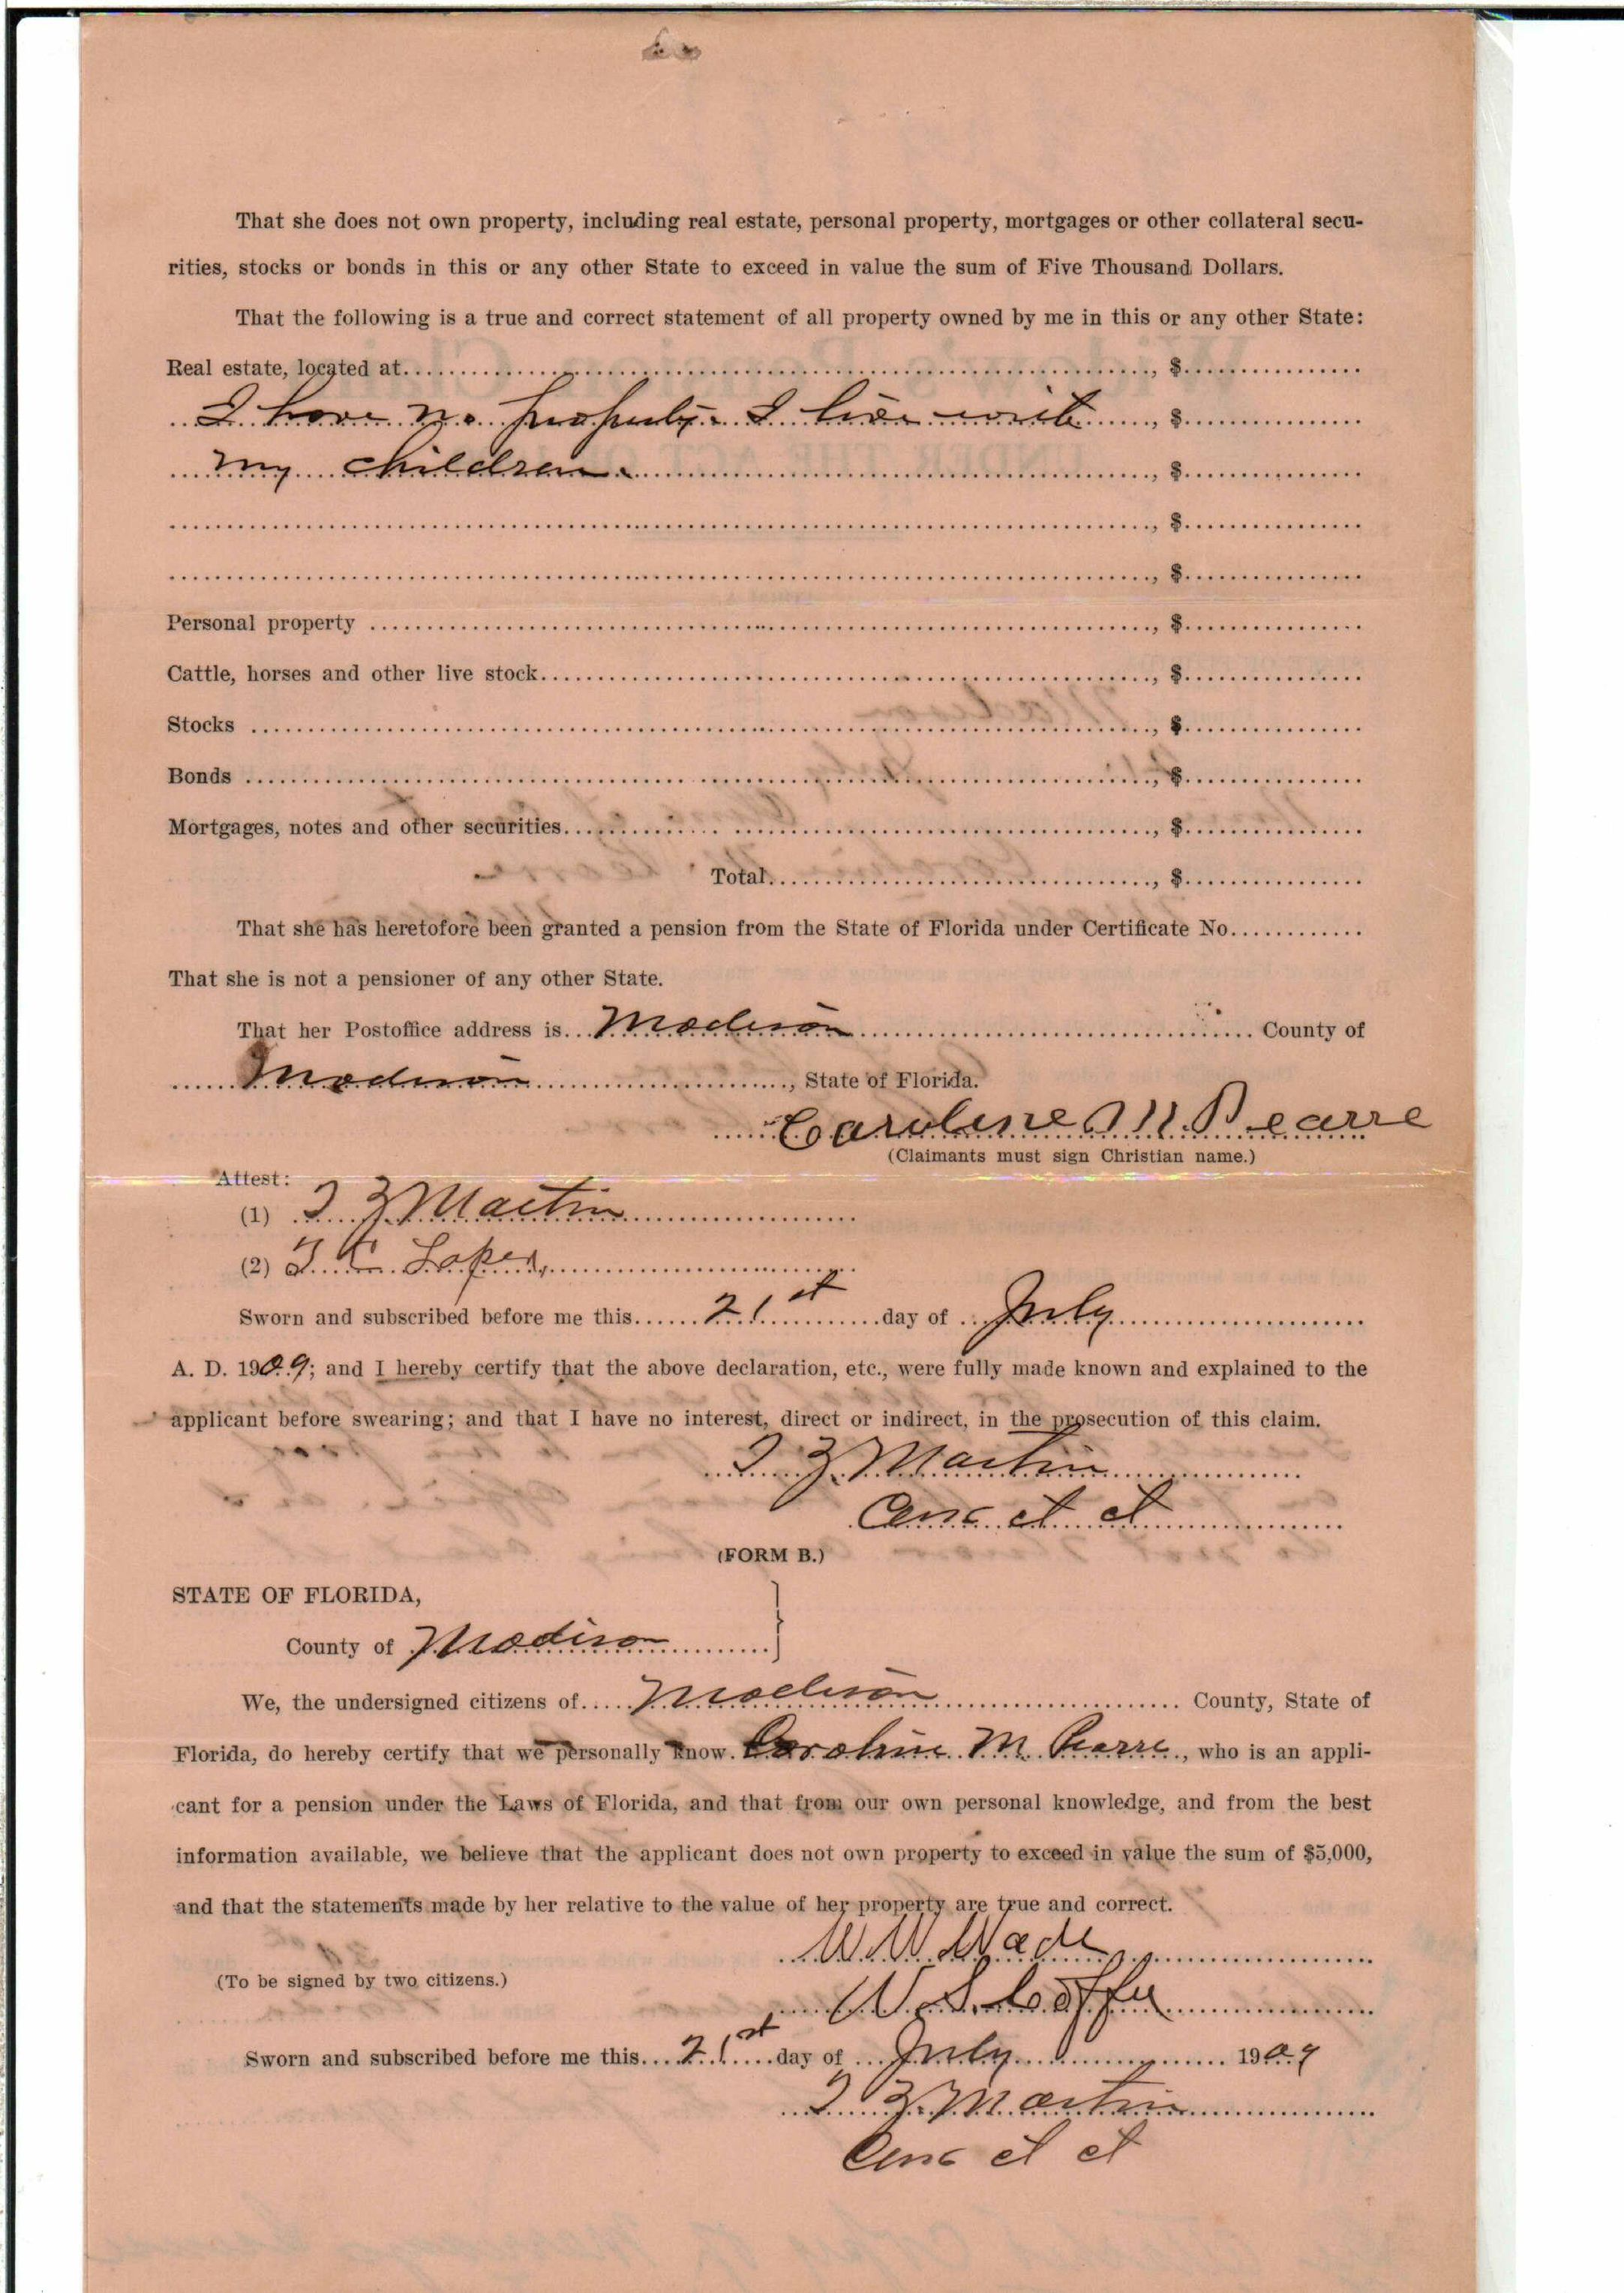 That she does not own property, including real estate, personal property, mortgages or other collateral secu-
rities, stocks or bonds in this or any other State to exceed in value the sum of Five Thousand Dollars.
That the following is a true and correct statement of all property owned by me in this or any other State:
Real estate, located at..., $...
I have no property. I live with..., $...
my children...., $...
..., $...
..., $...
Personal property ..., $...
Cattle, horses and other live stock..., $...
Stocks ..., $...
Bonds ..., $...
Mortgages, notes and other securities..., $...
Total..., $...
That she has heretofore been granted a pension from the State of Florida under Certificate No....
That she is not a pensioner of any other State.
That her Postoffice address is... Madison ... County of
Madison ..., State of Florida.
Caroline M. Pearre
(Claimants must sign Christian name.)
Attest:
(1) T Z Martin
(2) T C
Sworn and subscribed before me this... 21st ...day of ... July
A. D. 1909; and I hereby certify that the above declaration, etc., were fully made known and explained to the
applicant before swearing; and that I have no interest, direct or indirect, in the prosecution of this claim.
T Z Martin
Clerk ct ct
(FORM B.)
STATE OF FLORIDA,
County of Madison
We, the undersigned citizens of... Madison ... County, State of
Florida, do hereby certify that we personally know. Caroline M Pearre., who is an appli-
cant for a pension under the Laws of Florida, and that from our own personal knowledge, and from the best
information available, we believe that the applicant does not own property to exceed in value the sum of $5,000,
and that the statements made by her relative to the value of her property are true and correct.
W W Wade
(To be signed by two citizens.)
W. S. Coffee
Sworn and subscribed before me this... 21st ...day of ... July ... 1909
T Z Martin
Clerk ct ct